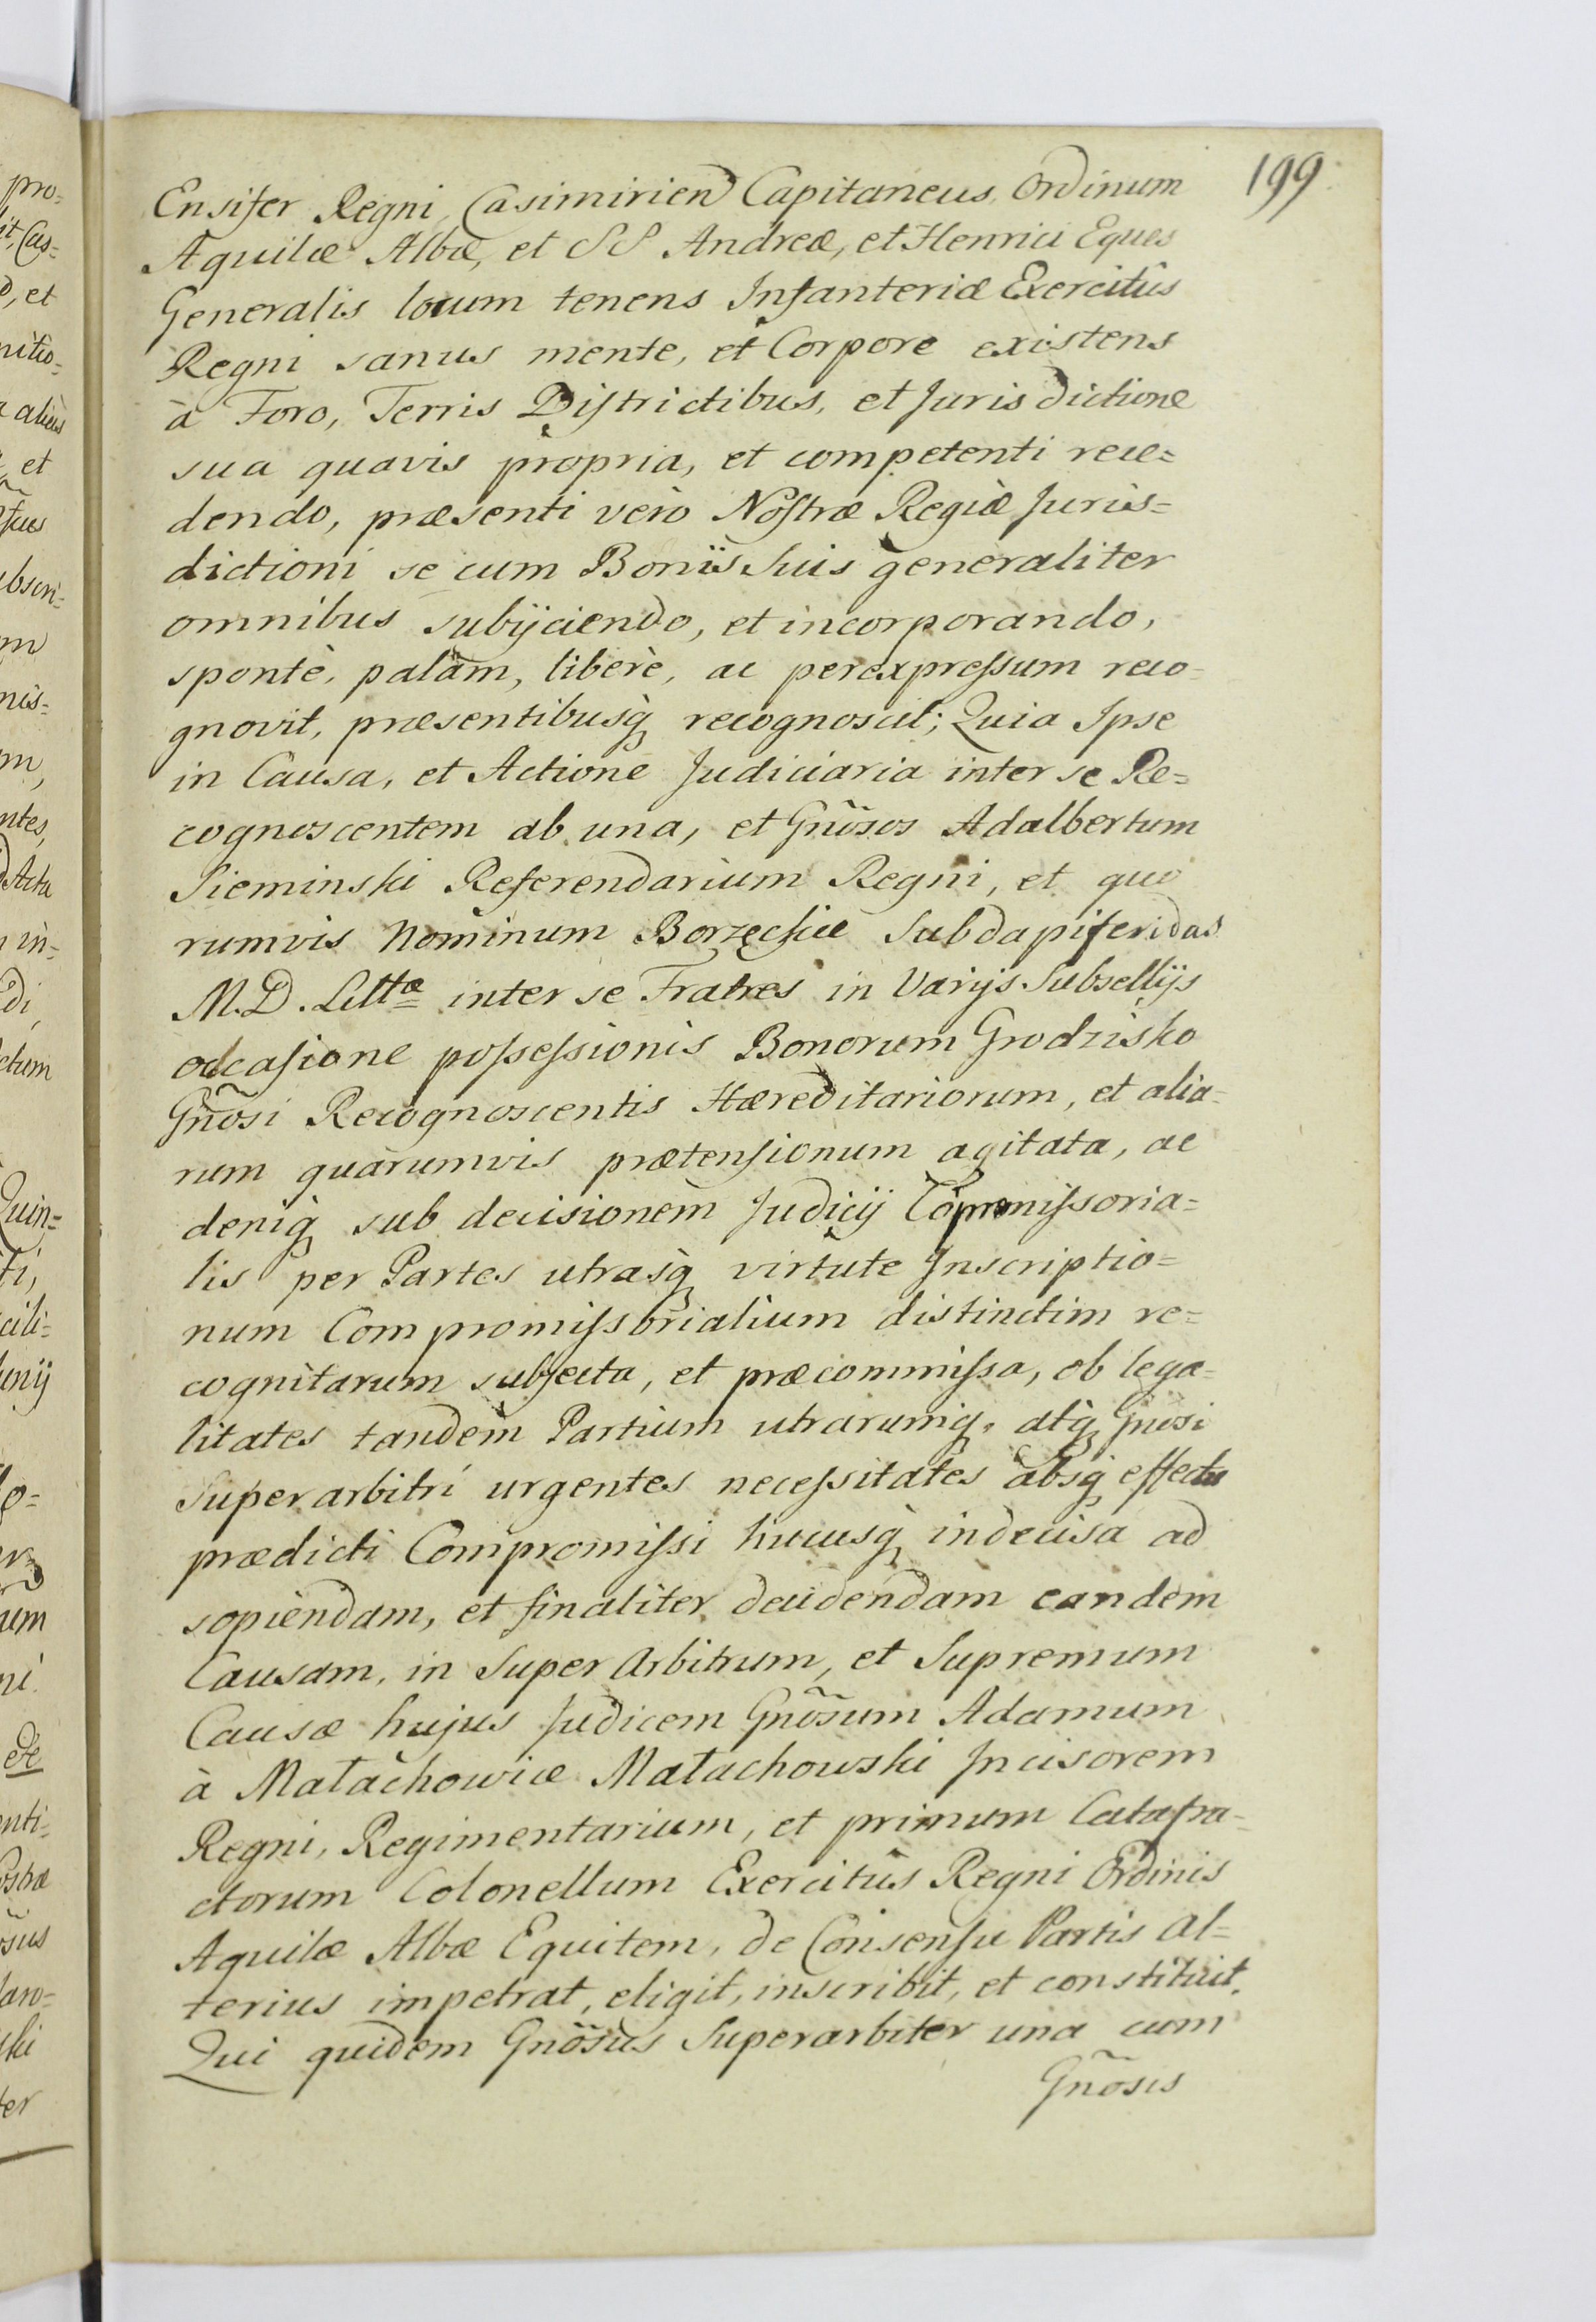 199.
Ensifer Regni, Casimirien Capitaneus, Ordinum
Aquilæ Albæ, et SS Andreæ, et Henrici Eques
Generalis locum tenens Infanteriæ Exercitûs
Regni sanus mente, et Corpore existens
à Foro, Terris Districtibus, et Jurisdictione
sua quavis propria, et competenti rece=
dendo, præsenti verò Nostræ Regiæ Juris=
dictioni se cum Boniis suis generaliter
omnibus subijciendo, et incorporando,
spontè, palàm, liberè, ac per expressum reco=
gnovit, præsentibusq̀ recognoscit; Quia Ipse
in Causa, et Actione Judiciaria inter se Re=
cognoscentem ab una, et Gnõsos Adalbertum
Sieminski Referendarium Regni, et quo
rumvis Nominum Borzęckie Subdapiferidas
M.D. Littæ inter se Fratres in Varijs Subsellijs
occasione possessionis Bonorum Grodzisko
Gnõsi Recognoscentis Hæreditariorum, et alia=
rum quarumvis prætensionum agitata, ac
deniq̀ sub decisionem Judicij Compromissoria=
lis per Partes utrasq̀ virtute Inscriptio=
num Compromissorialium distinctim re=
cognitarum subjecta, et præcommissa, ob lega=
litates tandem Partium utrarumq̀, atq̀ Gnõsi
Superarbitri urgentes necessitates absq̀ effectu
prædicti Compromissi hucusq̀ indecisa ad
sopiendam, et finaliter decidendam eandem
Causam, in Super Arbitrum, et Supremum
Causæ hujus Judicem Gnõsum Adamum
à Małachowice Małachowski Incisorem
Regni, Regimentarium, et primum Catafra=
ctorum Colonellum Exercitûs Regni Ordinis
Aquilæ Albæ Equitem, de Consensu Partis al=
terius impetrat, eligit, inscribit, et constituit.
Qui quidem Gnõsus Superarbiter una cum
Gnõsis